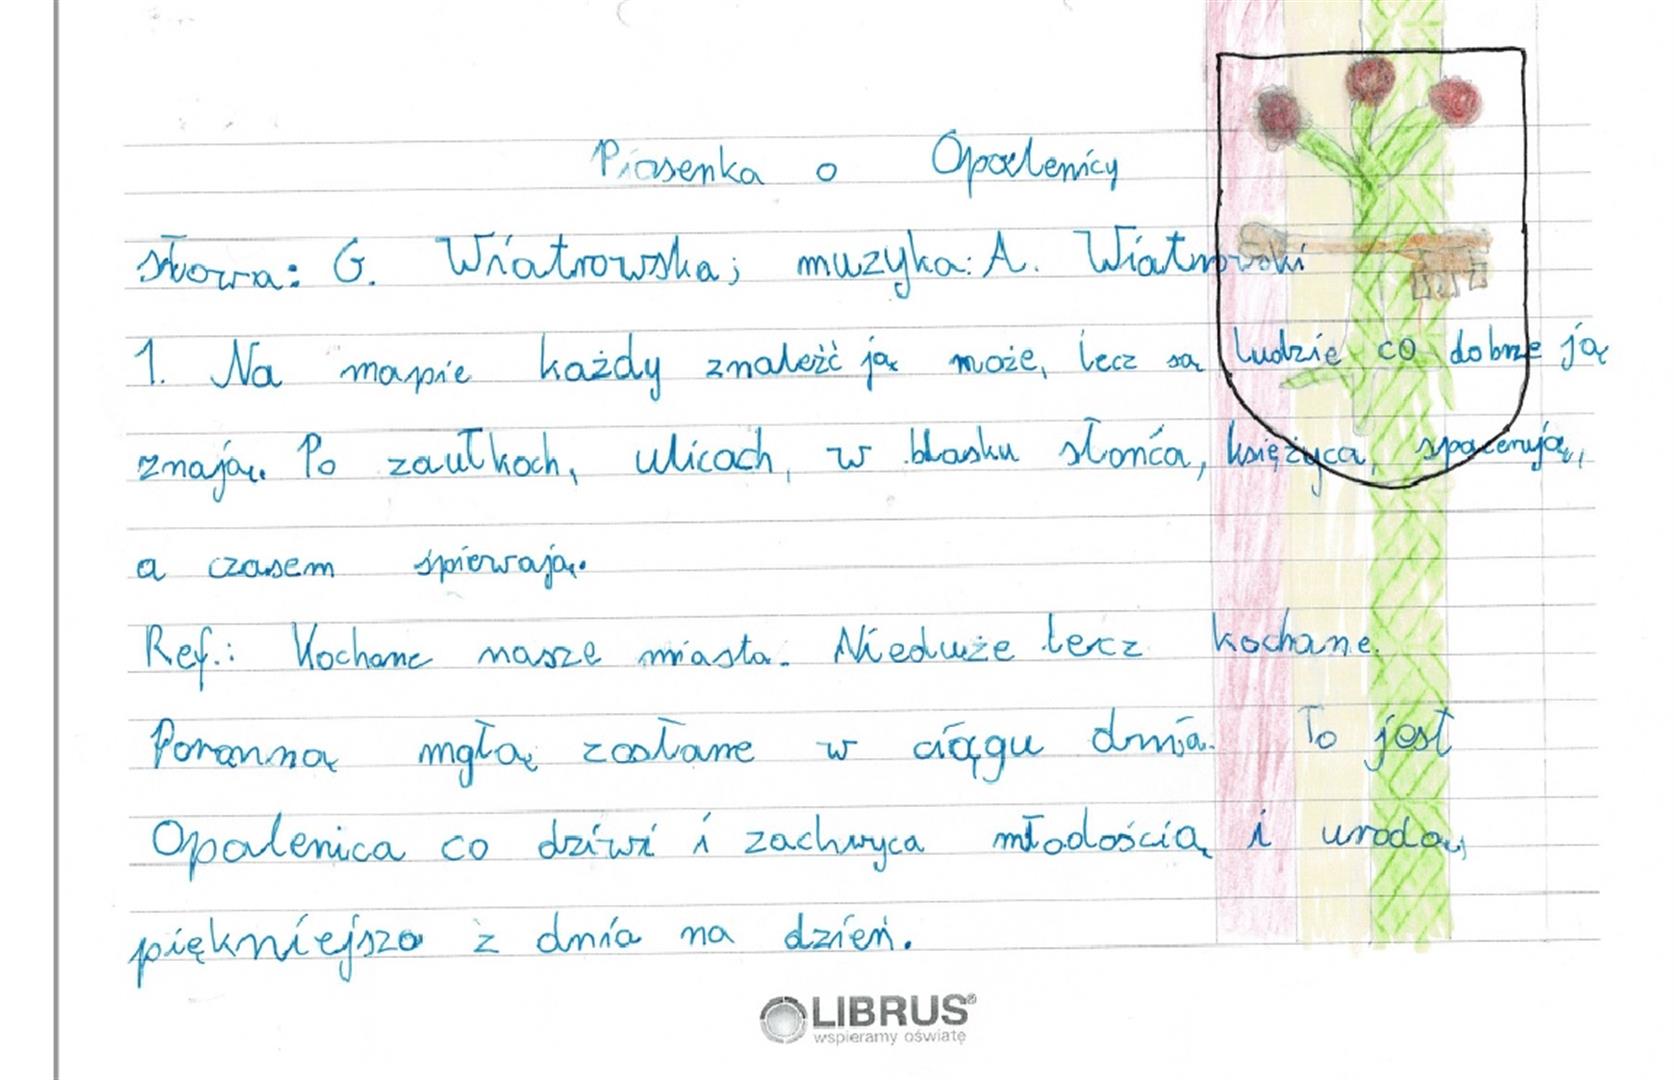 Piosenka o Opalenicy
słowa: G. Wiatrowska; muzyka: A. Wiatrowski
1. Na mapie każdy znaleźć ją może, lecz są ludzie co dobrze ją
znają. Po zaułkach, ulicach, w blasku słońca, księżyca, spacerują,
a czasem śpiewają.
Ref.: Kochane nasze miasta. Nieduże lecz kochane.
Poranną mgłą zasłane w ciągu dnia. To jest
Opalenica co dziwi i zachwyca młodością i urodą,
piękniejsza z dnia na dzień.
LIBRUS®
wspieramy oświatę